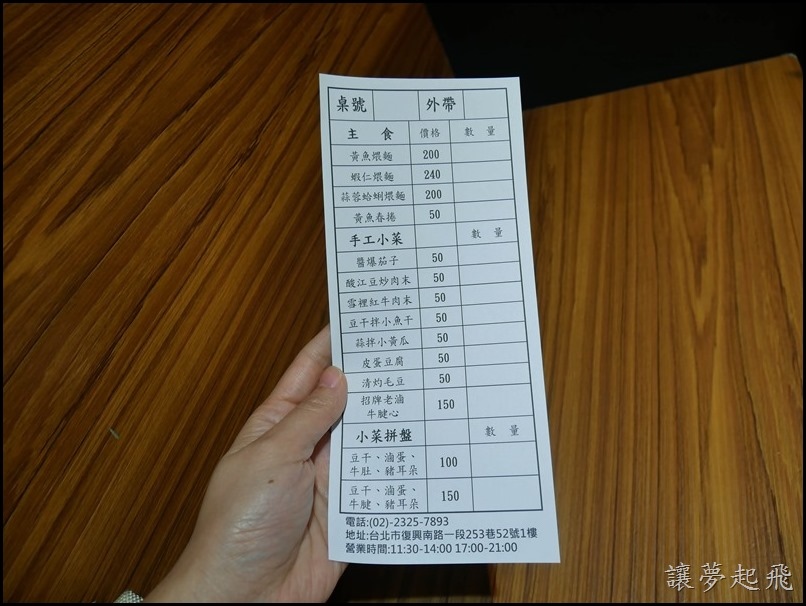 桌號 外帶
主 食 價格 數 量
黃魚煨麵 200
蝦仁煨麵 240
蒜蓉蛤蜊煨麵 200
黃魚春捲 50
手工小菜 數 量
醬爆茄子 50
酸江豆炒肉末 50
雪裡紅牛肉末 50
豆干拌小魚干 50
蒜拌小黃瓜 50
皮蛋豆腐 50
清灼毛豆 50
招牌老滷
牛腱心 150
小菜拼盤 數 量
豆干、滷蛋、
牛肚、豬耳朵 100
豆干、滷蛋、
牛腱、豬耳朵 150
電話:(02)-2325-7893
地址:台北市復興南路一段253巷52號1樓
營業時間:11:30-14:00 17:00-21:00
讓夢起飛